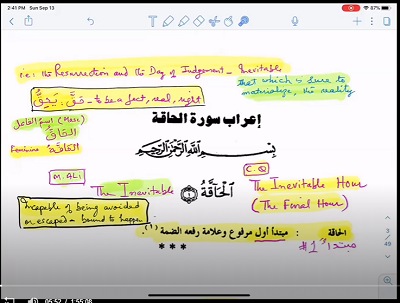 2:41 PM Sun Sep 13
87%
i.e. the Resurrection and the Day of Judgement - Inevitable
that which is sure to
materialize, the reality
حَقَّ : يَحِقُّ - to be a fact, real, right
اسم الفاعل (Masc)
الحَاقُّ
Feminine الحَاقَّةُ
إعراب سورة الحاقة
بِسْمِ اللَّهِ الرَّحْمَنِ الرَّحِيمِ
M. Ali
C.Q
The Inevitable
الْحَاقَّةُ ١
The Inevitable Hour
(The Final Hour)
Incapable of being avoided
or escaped - bound to happen
الحاقة : مبتدأ أول مرفوع وعلامة رفعه الضمة (١).
مبتدأ #1
***
3
49
05:52 / 1:55:08